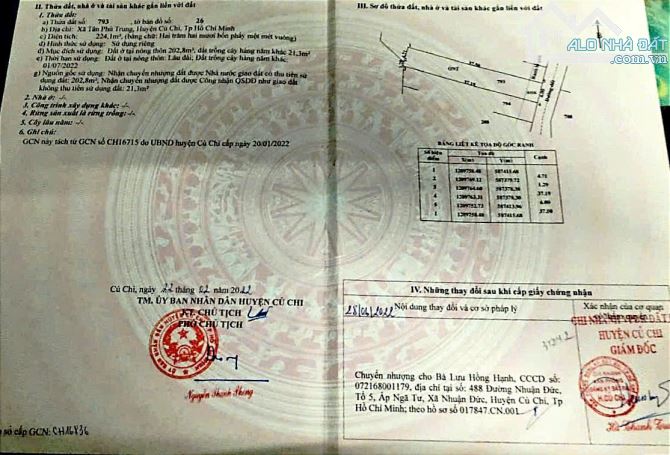 II. Thửa đất, nhà ở và tài sản khác gắn liền với đất
1. Thửa đất:
a) Thửa đất số: 793 , tờ bản đồ số: 26
b) Địa chỉ: Xã Tân Phú Trung, Huyện Củ Chi, Tp Hồ Chí Minh
c) Diện tích: 224,1m², (bằng chữ: Hai trăm hai mươi bốn phẩy một mét vuông)
d) Hình thức sử dụng: Sử dụng riêng
đ) Mục đích sử dụng: Đất ở tại nông thôn 202,8m²; đất trồng cây hàng năm khác 21,3m²
e) Thời hạn sử dụng: Đất ở tại nông thôn: Lâu dài; Đất trồng cây hàng năm khác:
01/07/2022
g) Nguồn gốc sử dụng: Nhận chuyển nhượng đất được Nhà nước giao đất có thu tiền
sử dụng đất: 202,8m²; Nhận chuyển nhượng đất được Công nhận QSDĐ như giao đất
không thu tiền sử dụng đất: 21,3m²
2. Nhà ở: -/-
3. Công trình xây dựng khác: -/-
4. Rừng sản xuất là rừng trồng: -/-
5. Cây lâu năm: -/-
6. Ghi chú:
GCN này tách từ GCN số CH16715 do UBND huyện Củ Chi cấp ngày 20/01/2022
Củ Chi, ngày 22 tháng 02 năm 2022
TM. ỦY BAN NHÂN DÂN HUYỆN CỦ CHI
KT. CHỦ TỊCH
PHÓ CHỦ TỊCH
số cấp GCN: CH16836
III. Sơ đồ thửa đất, nhà ở và tài sản khác gắn liền với đất
ALO NHÀ ĐẤT
.com.vn
ONT
793
794
788
BẢNG LIỆT KÊ TỌA ĐỘ GÓC RANH
Số hiệu điểm Tọa độ Cạnh
X(m) Y(m)
1 1209758.48 587415.68
4.71
1.29
37.19
6.00
37.00
1 1209758.48 587415.68
IV. Những thay đổi sau khi cấp giấy chứng nhận
Nội dung thay đổi và cơ sở pháp lý
Xác nhận của cơ quan
HUYỆN CỦ CHI
GIÁM ĐỐC
Chuyển nhượng cho Bà Lưu Hồng Hạnh, CCCD số:
072168001179, địa chỉ tại số: 488 Đường Nhuận Đức,
Tổ 5, Ấp Ngã Tư, Xã Nhuận Đức, Huyện Củ Chi, Tp
Hồ Chí Minh; theo hồ sơ số 017847.CN.001